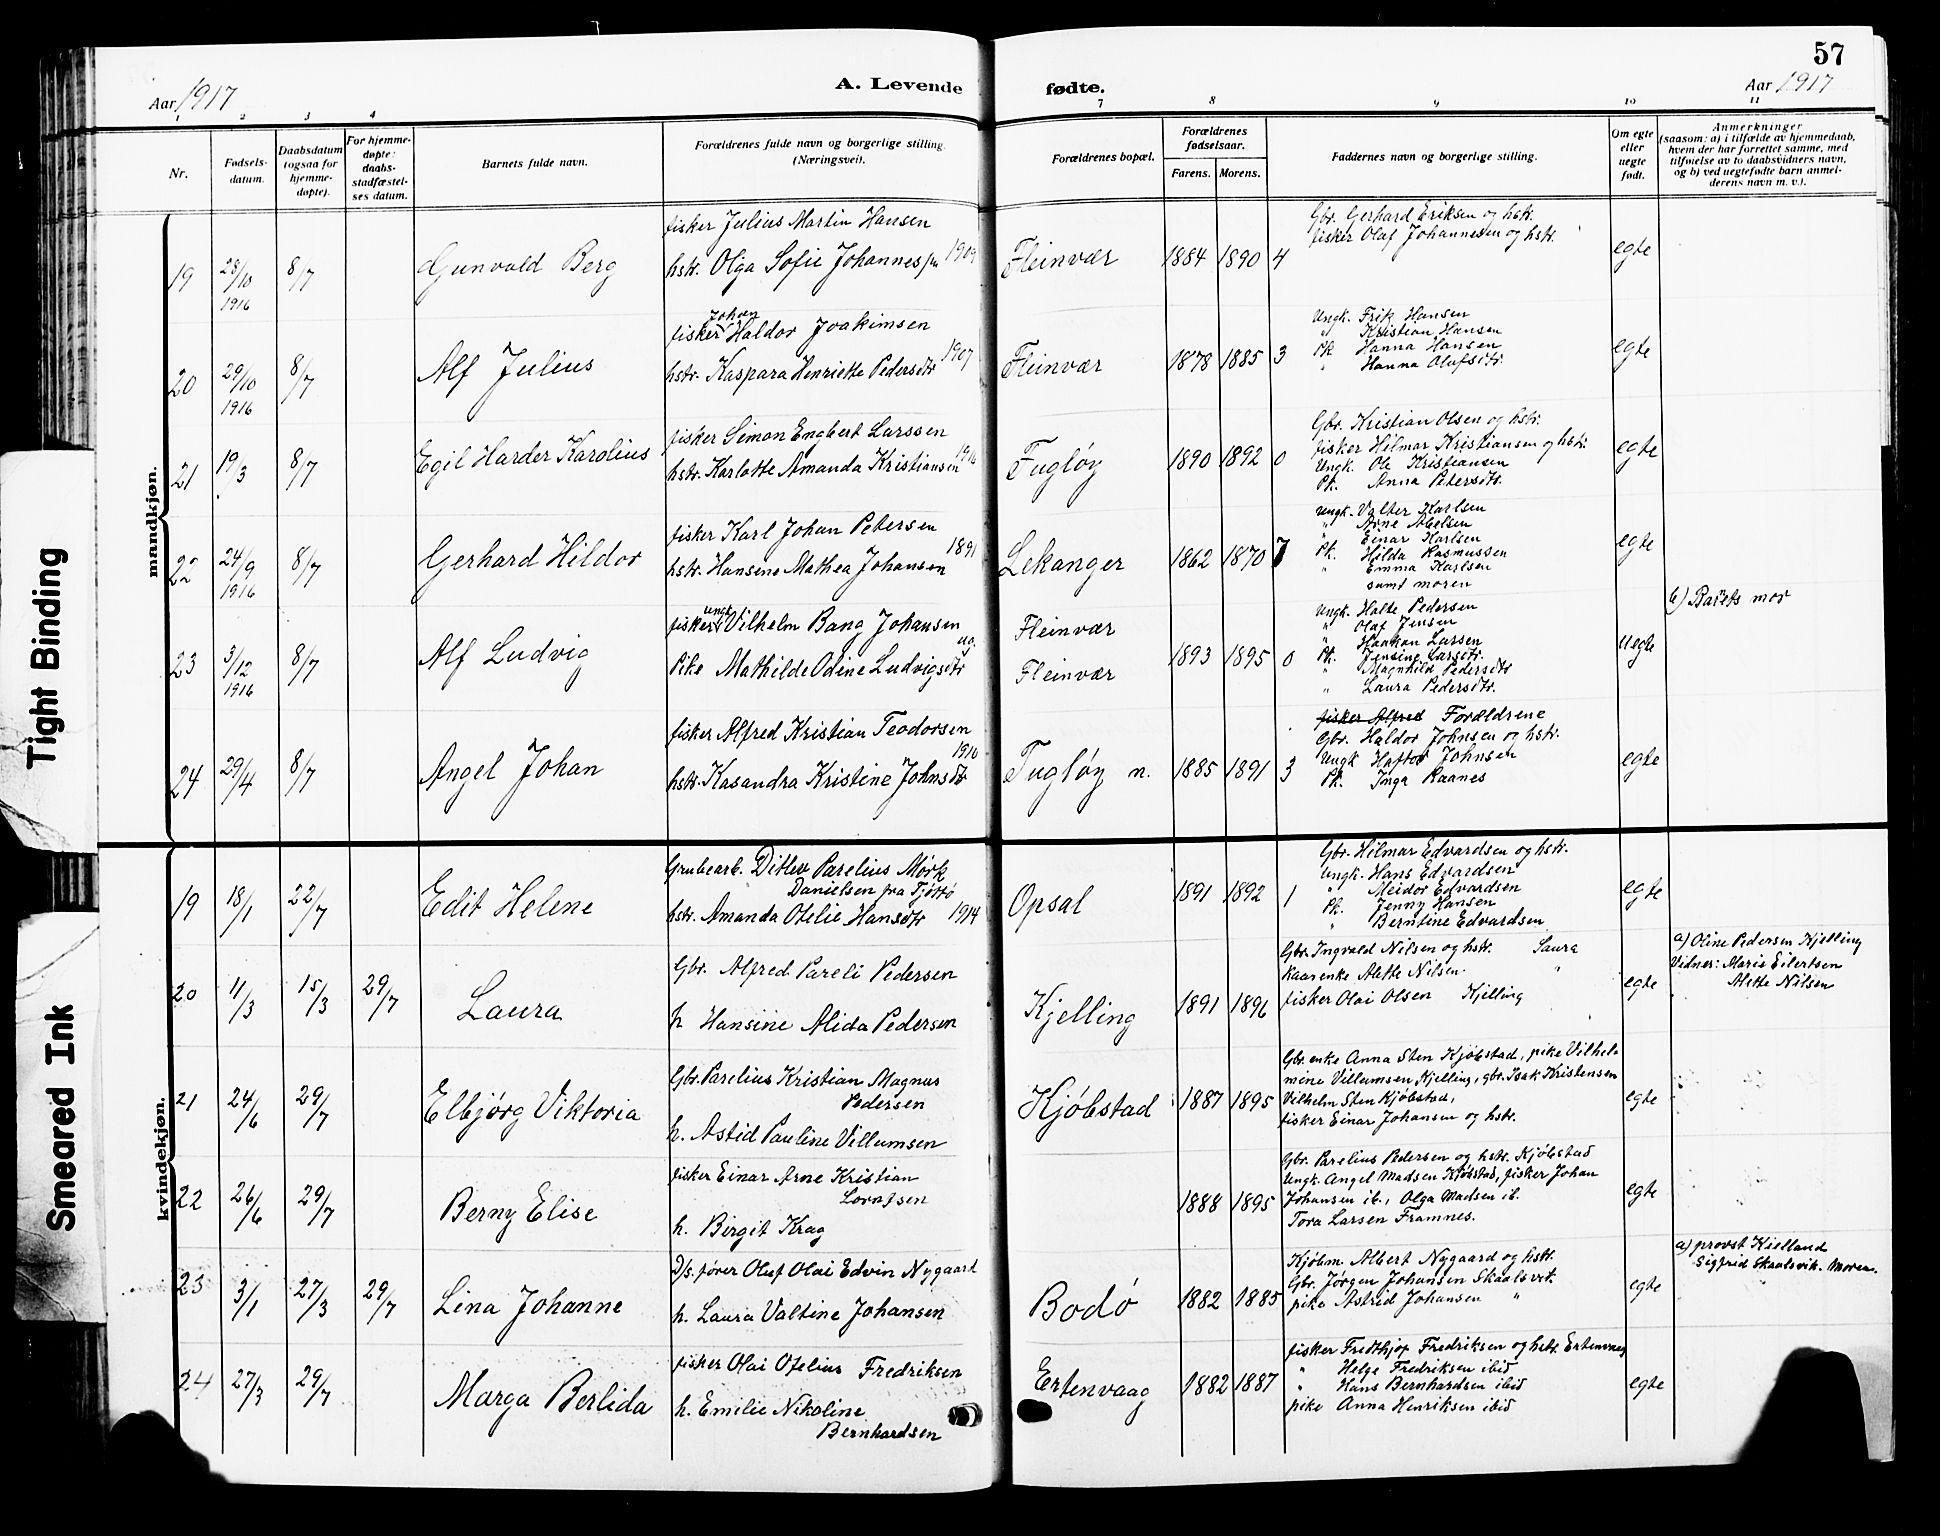 57
Aar 1917
A. Levende
fødte.
Aar 1917
1 2 3 4 7 8 9 10 11
Nr.
Fødsels-
datum.
Daabsdatum
(ogsaa for
hjemme-
døpte).
For hjemme-
døpte:
daabs-
stadfæstel-
ses datum.
Barnets fulde navn.
Forældrenes fulde navn og borgerlige stilling.
(Næringsvei).
Forældrenes bopæl.
Forældrenes
fødselsaar.
Farens. Morens.
Faddernes navn og borgerlige stilling.
Om egte
eller
uegte
født.
Anmerkninger
(saasom: a) i tilfælde av hjemmedaab,
hvem der har forrettet samme, med
tilføielse av to daabsvidners navn,
og b) ved uegtefødte barn anmel-
derens navn m. v.).
mandkjøn.
19 28/10 1916 8/7 Gunvald Berg
fisker Julius Martin Hansen
hstr. Olga Sofie Johannes 1909
Fleinvær 1884 1890 4
Gbr. Gerhard Eriksen og hstr.
fisker Olaf Johannessen og hstr.
egte
20 29/10 1916 8/7 Alf Julius
Johan
fisker Haldor Joakimsen
hstr. Kaspara Henriette Pedersdtr 1907
Fleinvær 1878 1885 3
Ungk. Erik Hansen
" Kristian Hansen
Pk Hanna Hansen
" Hanna Olufsdtr.
egte
21 19/3 8/7 Egil Harder Karolius
fisker Simon Engbert Larssen
hstr. Karlotte Amanda Kristiansen 1916
Fugløy 1890 1892 0
Gbr. Kristian Olsen og hstr.
fisker Hilmar Kristiansen og hstr.
Ungk. Ole Kristiansen
Pk. Anna Petersdtr.
egte
22 24/9 1916 8/7 Gerhard Hildor
fisker Karl Johan Petersen
hstr. Hansene Mathea Johansen 1891
Lekanger 1862 1870 7
Ungk. Valter Karlsen
" Arne Abelsen
" Einar Karlsen
Pk. Hilda Rasmussen
" Emma Karlsen
samt moren
egte
23 3/12 1916 8/7 Alf Ludvig
ungk.
fisker Vilhelm Bang Johansen
ug.
Pike Mathilde Odine Ludvigsdtr
Fleinvær
Fleinvær
1893 1895 0
Ungk. Halte Pedersen
" Olaf Jensen
" Haakon Larsen
Pk. Jensine Larsdtr.
" Magnhild Pedersdtr
" Laura Pedersdtr.
uegte
b) Barets mor
24 29/4 8/7 Angel Johan
fisker Alfred Kristian Teodorsen
1910
hstr. Kasandra Kristine Johnsdtr
Fugløy n. 1885 1891 3
fisker Alfred Forældrene
Gbr. Haldor Johnsen og hstr.
Ungk Haftor Johnsen
Pk. Inga Raanes
egte
kvindekjøn.
19 18/1 22/7 Edit Helene
Grubearb. Ditlev Parelius Mørk
Danielsen fra Tjøttø
hstr. Amanda Otelie Hansdtr 1914
Opsal 1891 1892 1
Gbr. Hilmar Edvardsen og hstr.
Ungk. Hans Edvardsen
" Meidor Edvardsen
Pk. Jenny Hansen
" Berntine Edvardsen
egte
20 11/3 15/3 29/7 Laura
Gbr. Alfred Pareli Pedersen
h Hansine Alida Pedersen
Kjelling 1891 1896
Gbr. Ingvald Nilsen og hstr. Saura
Kaarenke Alette Nilsen "
fisker Olai Olsen Kjelling
egte
a) Oline Pedersen Kjelling
Vidner: Marie Eilertsen
Alette Nilsen
21 24/6 29/7 Elbjørg Viktoria
Gbr. Parelius Kristian Magnus
Pedersen
h. Astid Pauline Villumsen
Kjøbstad 1887 1895
Gbr. enke Anna Sten Kjøbstad, pike Vilhel-
mine Villumsen Kjelling, gbr. Isak Kristensen
Vilhelm Sten Kjøbstad,
fisker Einar Johansen og hstr.
egte
22 26/6 29/7 Berny Elise
fisker Einar Arne Kristian
Lorntsen
h. Birgit Krag
1888 1895
Gbr. Parelius Pedersen og hstr. Kjøbstad
Ungk. Angel Madsen Kjøbstad, fisker Johan
Johansen ib., Olga Madsen ib.
Tora Larsen Framnes.
egte
23 3/1 27/3 29/7 Lina Johanne
D/s. fører Oluf Olai Edvin Nygaard
h. Laura Valtine Johansen
Bodø 1882 1885
Kjøbm. Albert Nygaard og hstr.
Gbr. Jørgen Johansen Skaalsvik.
pike Astrid Johansen "
egte
a) provst Kielland
Sigfrid Skaalsvik. Moren.
24 27/3 29/7 Marga Berlida
fisker Olai Otelius Fredriksen
h. Emilie Nikoline
Bernhardsen
Ertenvaag 1882 1887
fisker Fredthjof Fredriksen og hstr. Ertenvaag
" Helge Fredriksen ibid
" Hans Bernhardsen ibid
pike Anna Henriksen ibid
egte
Tight Binding
Smeared Ink